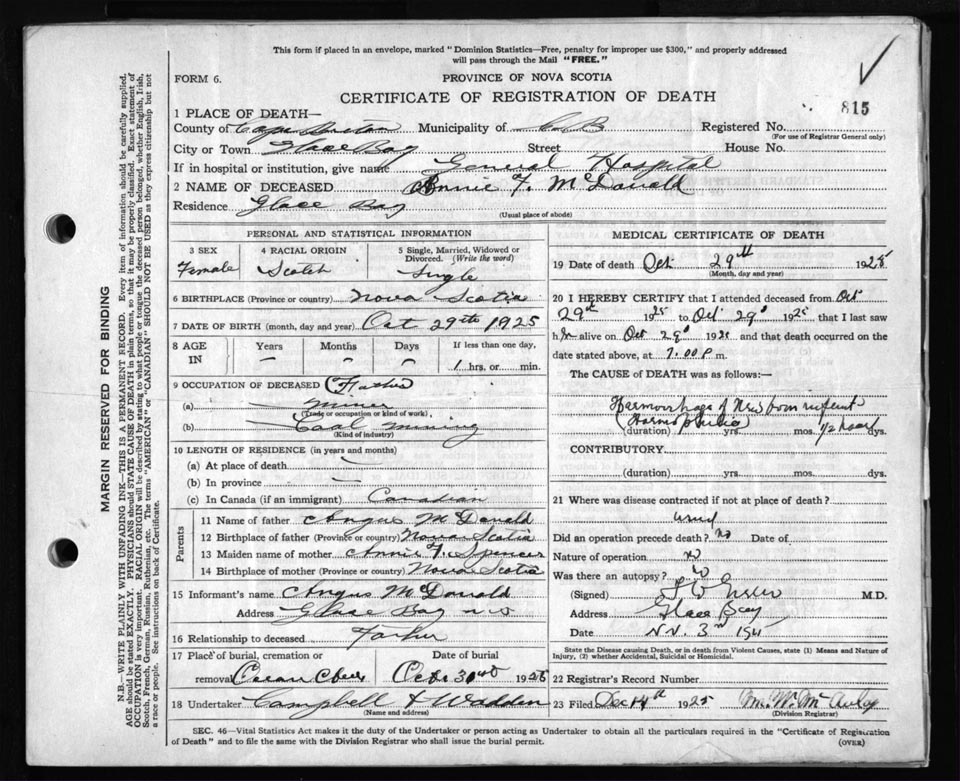 This form if placed in an envelope, marked "Dominion Statistics—Free, penalty for improper use $300," and properly addressed
will pass through the Mail "FREE."
FORM 6.
PROVINCE OF NOVA SCOTIA
815
CERTIFICATE OF REGISTRATION OF DEATH
1 PLACE OF DEATH—
County of Cape Breton Municipality of C.B Registered No.
(For use of Registrar General only)
City or Town Glace Bay Street House No.
If in hospital or institution, give name General Hospital
2 NAME OF DECEASED Annie F. McDonald
Residence Glace Bay
(Usual place of abode)
PERSONAL AND STATISTICAL INFORMATION
3 SEX 4 RACIAL ORIGIN 5 Single, Married, Widowed or
Divorced. (Write the word)
Female Scotch Single
6 BIRTHPLACE (Province or country) Nova Scotia
7 DATE OF BIRTH (month, day and year) Oct 29th 1925
8 AGE IN Years Months Days If less than one day,
– – – 1 hrs. or min.
9 OCCUPATION OF DECEASED (Father
(a) Miner
(Trade or occupation or kind of work)
(b) Coal mining
(Kind of industry)
10 LENGTH OF RESIDENCE (in years and months)
(a) At place of death —
(b) In province —
(c) In Canada (if an immigrant) Canadian
Parents
11 Name of father Angus McDonald
12 Birthplace of father (Province or country) Nova Scotia
13 Maiden name of mother Annie F. Spencer
14 Birthplace of mother (Province or country) Nova Scotia
15 Informant's name Angus McDonald
Address Glace Bay
16 Relationship to deceased Father
17 Place of burial, cremation or Date of burial
removal Oct 30 1925
18 Undertaker Campbell & Wadden
(Name and address)
MEDICAL CERTIFICATE OF DEATH
19 Date of death Oct 29th 1925
(Month, day and year)
20 I HEREBY CERTIFY that I attended deceased from Oct
29th 1925 to Oct 29 1925 that I last saw
h alive on Oct 29 1925 and that death occurred on the
date stated above, at 7.00 P m.
The CAUSE of DEATH was as follows:—
Haemorrhage of Newborn infant
(duration) yrs. mos. 1/2 hour dys.
CONTRIBUTORY
(duration) yrs. mos. dys.
21 Where was disease contracted if not at place of death?
Did an operation precede death? no Date of
Nature of operation
Was there an autopsy?
(Signed) M.D.
Address Glace Bay
Date Nov. 3rd
State the Disease causing Death, or in death from Violent Causes, state (1) Means and Nature of
Injury, (2) whether Accidental, Suicidal or Homicidal.
22 Registrar's Record Number
23 Filed Dec 14 1925
(Division Registrar)
SEC. 46—Vital Statistics Act makes it the duty of the Undertaker or person acting as Undertaker to obtain all the particulars required in the "Certificate of Registration
of Death" and to file the same with the Division Registrar who shall issue the burial permit.
(OVER)
MARGIN RESERVED FOR BINDING
N.B.—WRITE PLAINLY WITH UNFADING INK—THIS IS A PERMANENT RECORD. Every item of information should be carefully supplied.
AGE should be stated EXACTLY. PHYSICIANS should STATE CAUSE OF DEATH in plain terms, so that it may be properly classified. Exact statement of
OCCUPATION is very important. RACIAL ORIGIN will be described by stating to what people or tongue the deceased person belonged, whether English, Irish,
Scotch, French, German, Russian, Ruthenian, etc. The terms "AMERICAN" or "CANADIAN" SHOULD NOT BE USED as they express citizenship but not
a race or people. See instructions on back of Certificate.